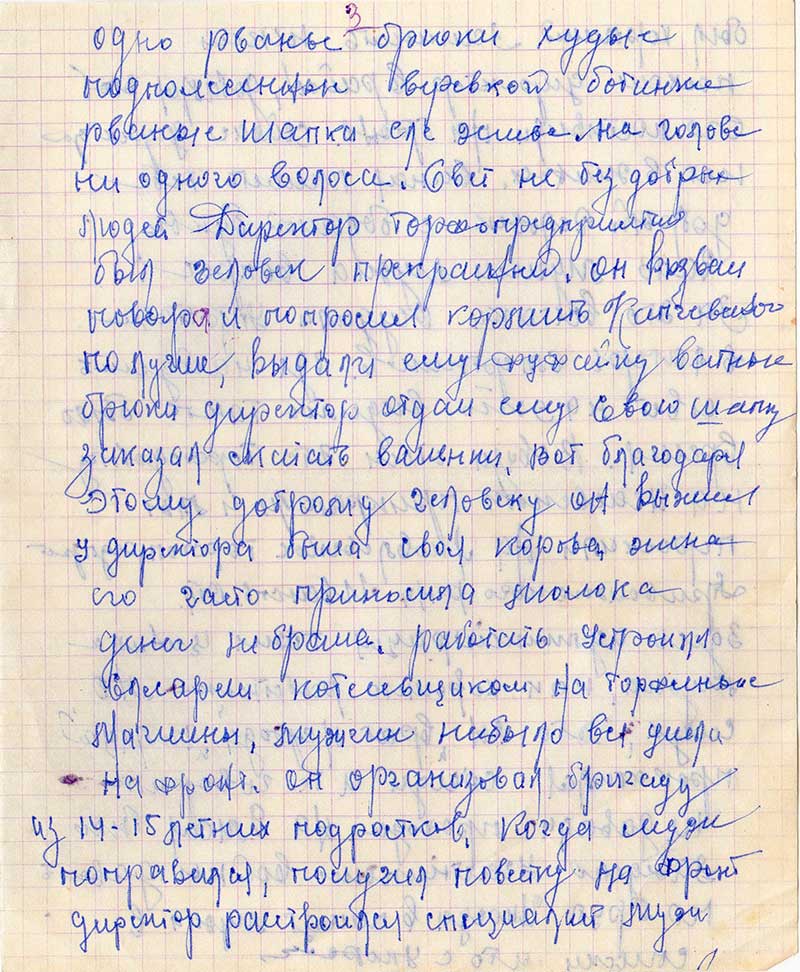 3
одно рваные брюки худые
подпоясанный верёвкой ботинки
рваные шапка еле жива на голове
ни одного волоса. Свет не без добрых
людей Директор торфопредприятия
был человек прекрасный. он вызвал
повара и попросил кормить Капчевского
по лучше, выдали ему фуфайку ватные
брюки директор отдал ему свою шапку
заказал скатать валенки, вот благодаря
этому доброму человеку он выжил
у директора была своя корова, жена
его часто приносила молока
денег небрала. работать устроили
слесарем котельщиком на торфяные
машины, мужчин небыло все ушли
на фронт. он организовал бригаду
из 14-15 летних подростков, Когда муж
поправился, получил повестку на фронт
директор растроился специалист муж